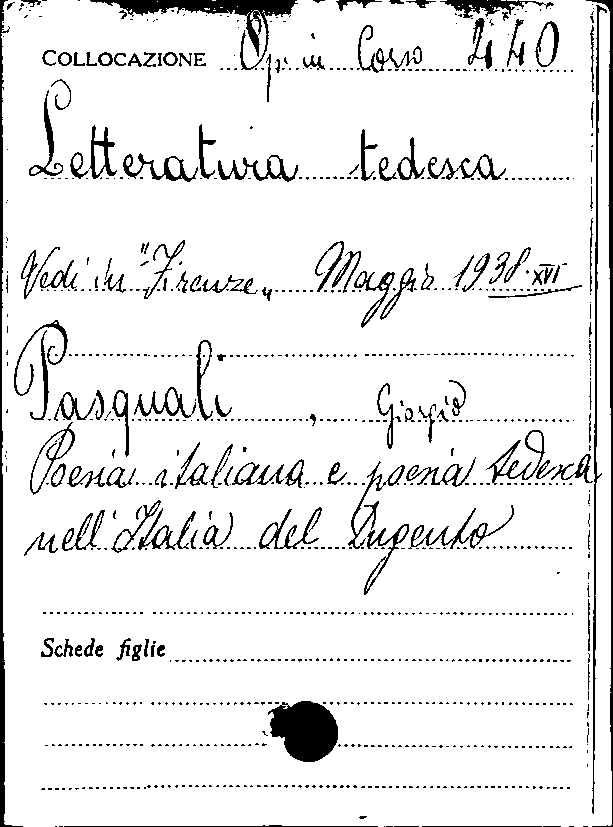 COLLOCAZIONE Op. in Corso 440
Letteratura tedesca
Vedi in "Firenze" Maggio 1938-XVI
Pasquali, Giorgio
Poesia italiana e poesia tedesca
nell'Italia del Dugento
Schede figlie